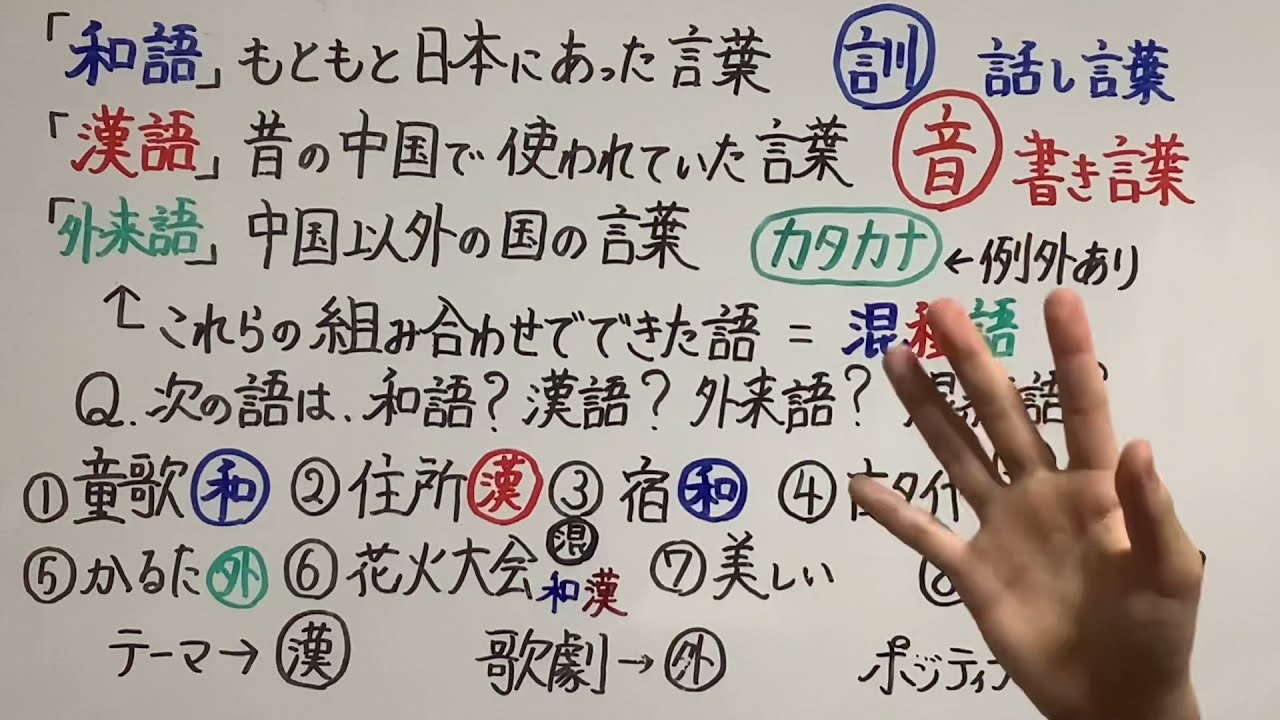 「和語」もともと日本にあった言葉 訓 話し言葉
「漢語」昔の中国で使われていた言葉 音 書き言葉
「外来語」中国以外の国の言葉 カタカナ ←例外あり
↑これらの組み合わせでできた語 = 混種語
Q.次の語は、和語?漢語?外来語?
①童歌 和 ②住所 漢 ③宿 和 ④
⑤かるた 外 ⑥花火大会 混 和漢 ⑦美しい ⑧
テーマ→漢 歌劇→外 ポジティ